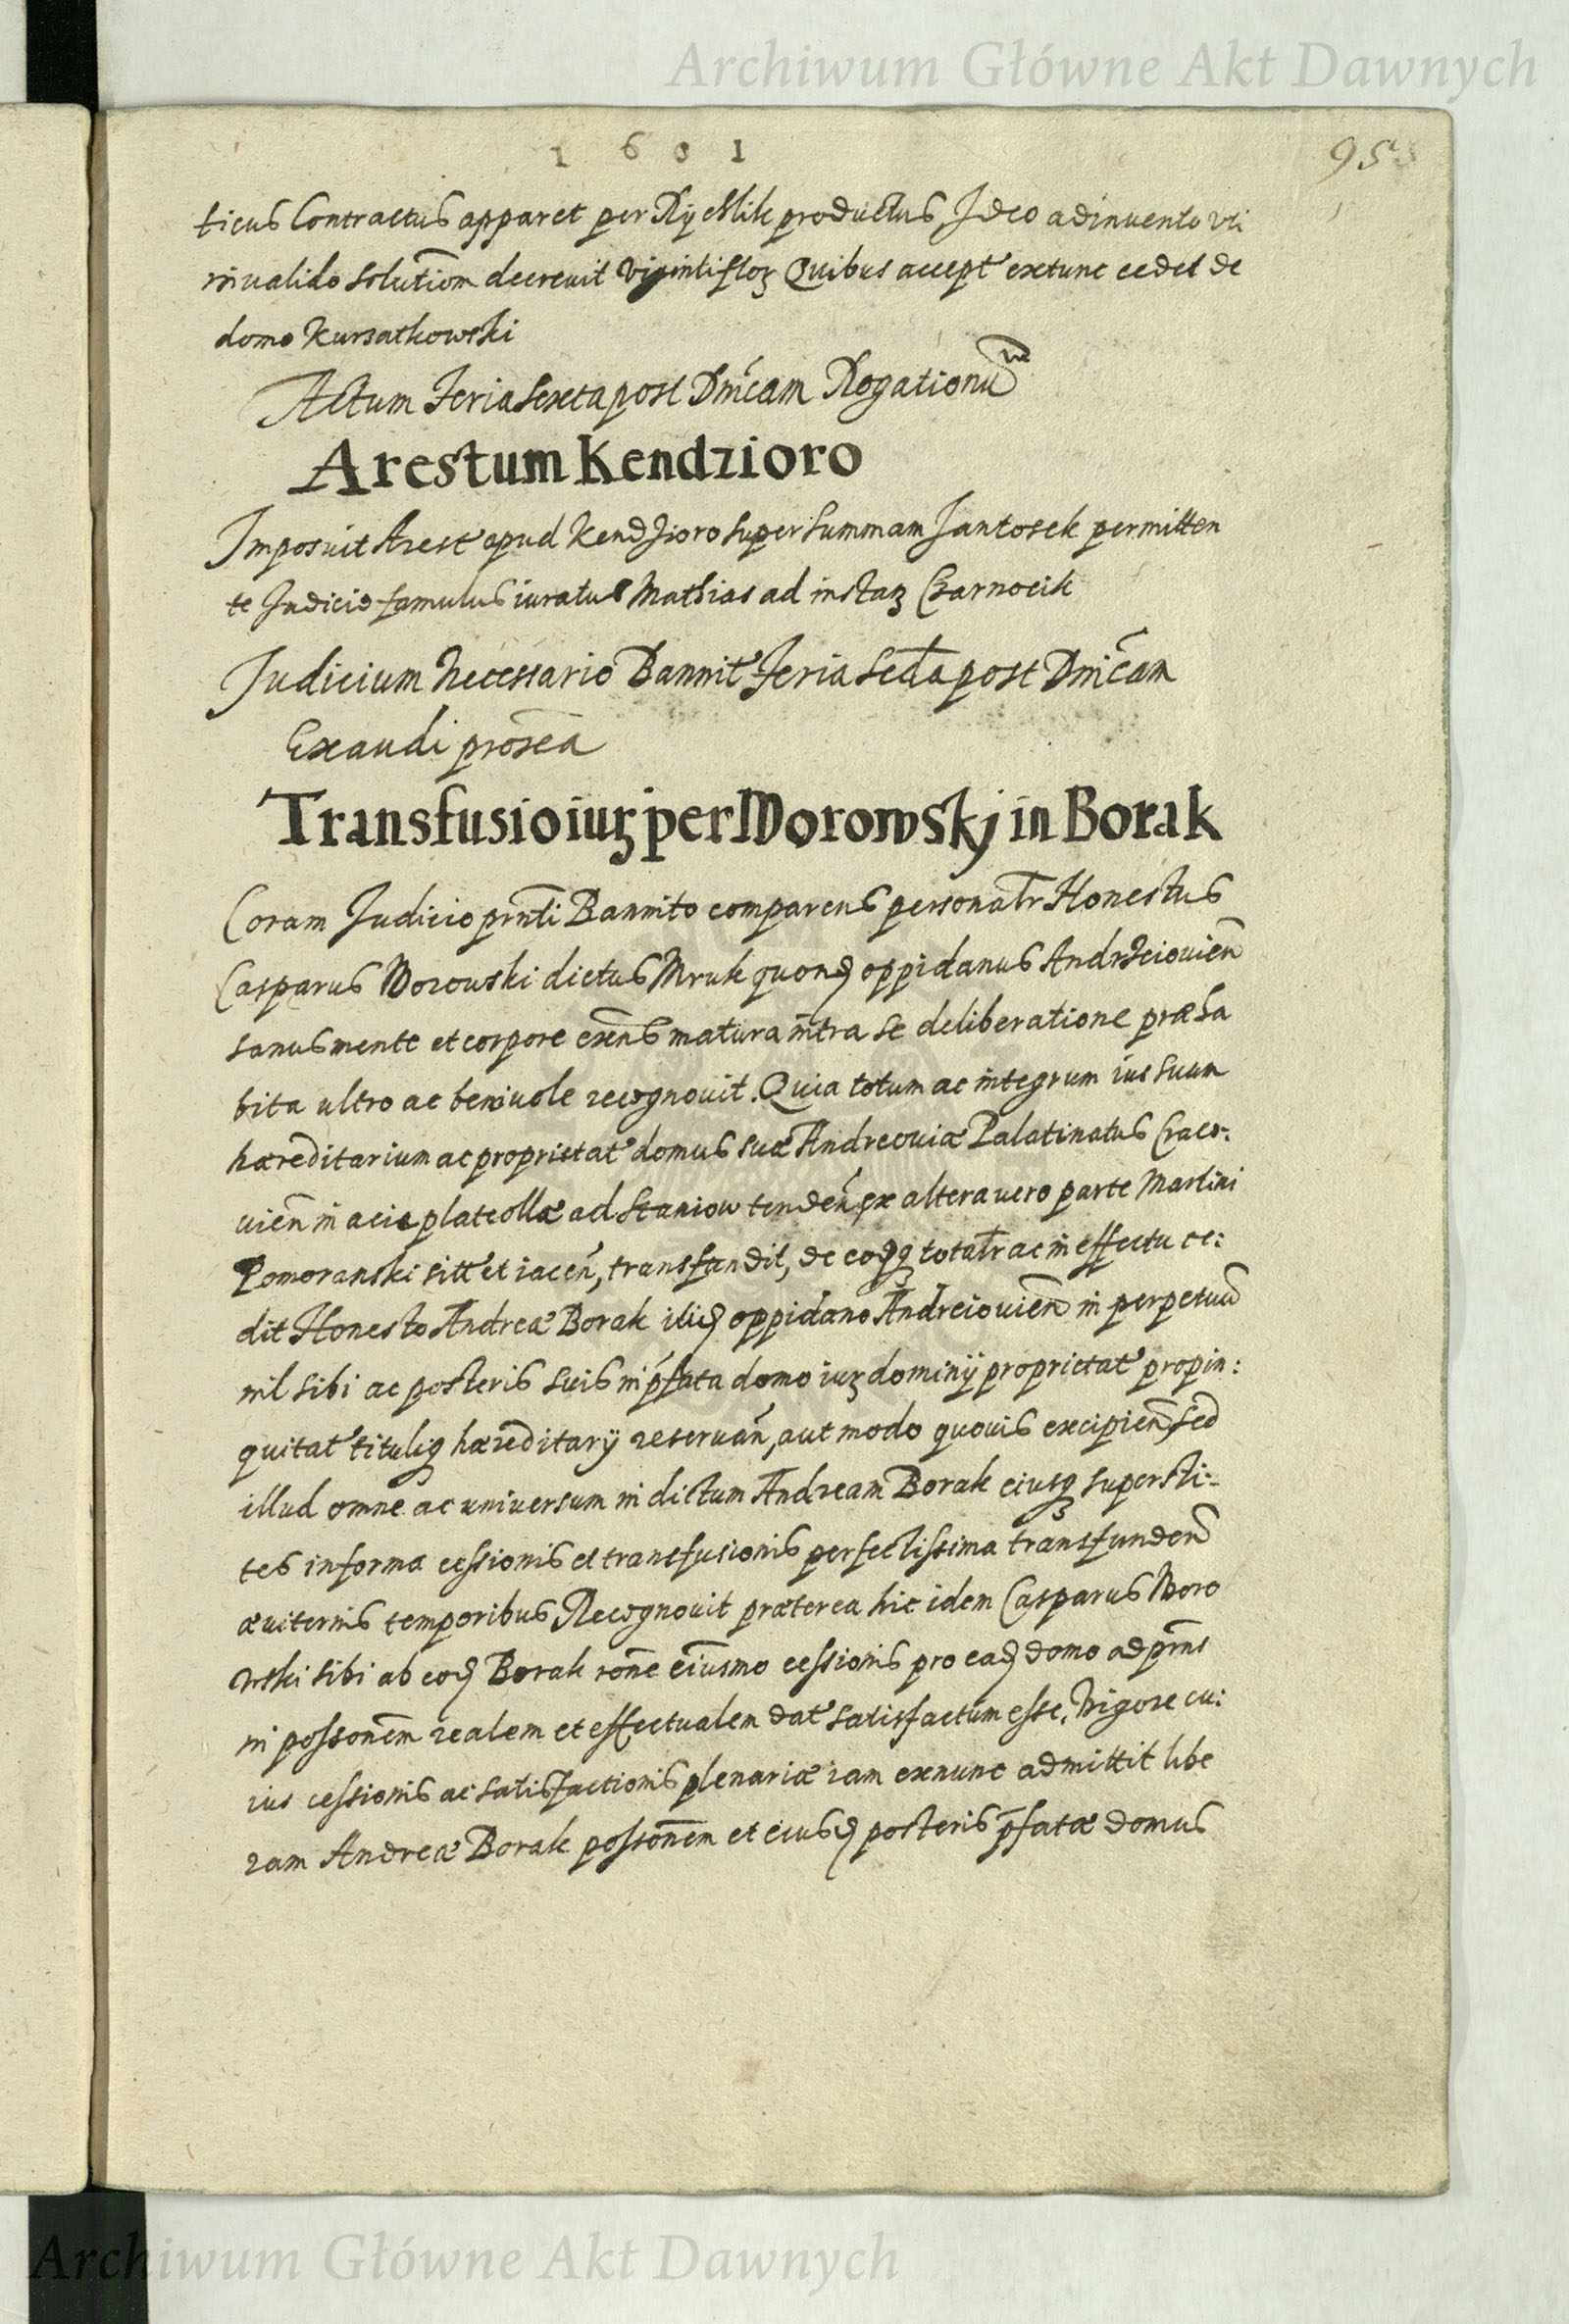 Archiwum Główne Akt Dawnych
1 6 0 1
95
ticus Contractus apparet per Rychlik productus Ideo adinuento uti
inualido solutiōm decreuit viginti floꝝ Quibus accept' extunc cedet de
domo Kursatkowski
Actum Feria Sexta post Dnīcam Rogationū
Arestum Kendzioro
Imposuit Arest' apud Kendzioro super summam Jantosek permitten
te Judicio famulus iuratus Mathias ad instaꝝ Czarnocik
Judicium Necessario Bannit' Feria Secda post Dnīcam
Exaudi
Transfusio iuꝝ per Worowskj in Borak
Coram Judicio prnti Bannito comparens personalr Honestus
Casparus Worowski dictus Mruk quond oppidanus Andrzeiouien̄
sanus mente et corpore exēns matura intra se deliberatione præha
bita ultro ac beniuole recognouit. Quia totum ac integrum ius suum
hæreditarium ac proprietat' domus suæ Andreouiæ Palatinatus Craco:
uien̄ in acie plateollæ ad Staniow tenden̄ ex altera uero parte Martini
Pomoranski sitt' et iacen̄, transfundit, de eodqꝫ totalr ac in effectu ce:
dit Honesto Andreæ Borak itid oppidano Andreiouien̄ in perpetuū
nil sibi ac posteris suis in p̄fata domo iuꝝ dominij proprietat' propin:
quitat' tituliqꝫ hæreditarij reseruan̄, aut modo quouis excipien̄ sed
illud omne ac uniuersum in dictum Andream Borak eiusqꝫ supersti:
tes in forma cessionis et transfusionis perfectissima transfunden̄
æuiternis temporibus Recognouit præterea hic idem Casparus Woro
wski sibi ab eod Borak rōne eiusmo cessionis pro ead domo ad prn̄s
in possonēm realem et effectualem dat' satisfactum esse. Vigore cu:
ius cessionis ac satisfactionis plenariæ iam exnunc admittit libe
ram Andreæ Borak possonēm et eiusd posteris p̄fatæ domus
Archiwum Główne Akt Dawnych